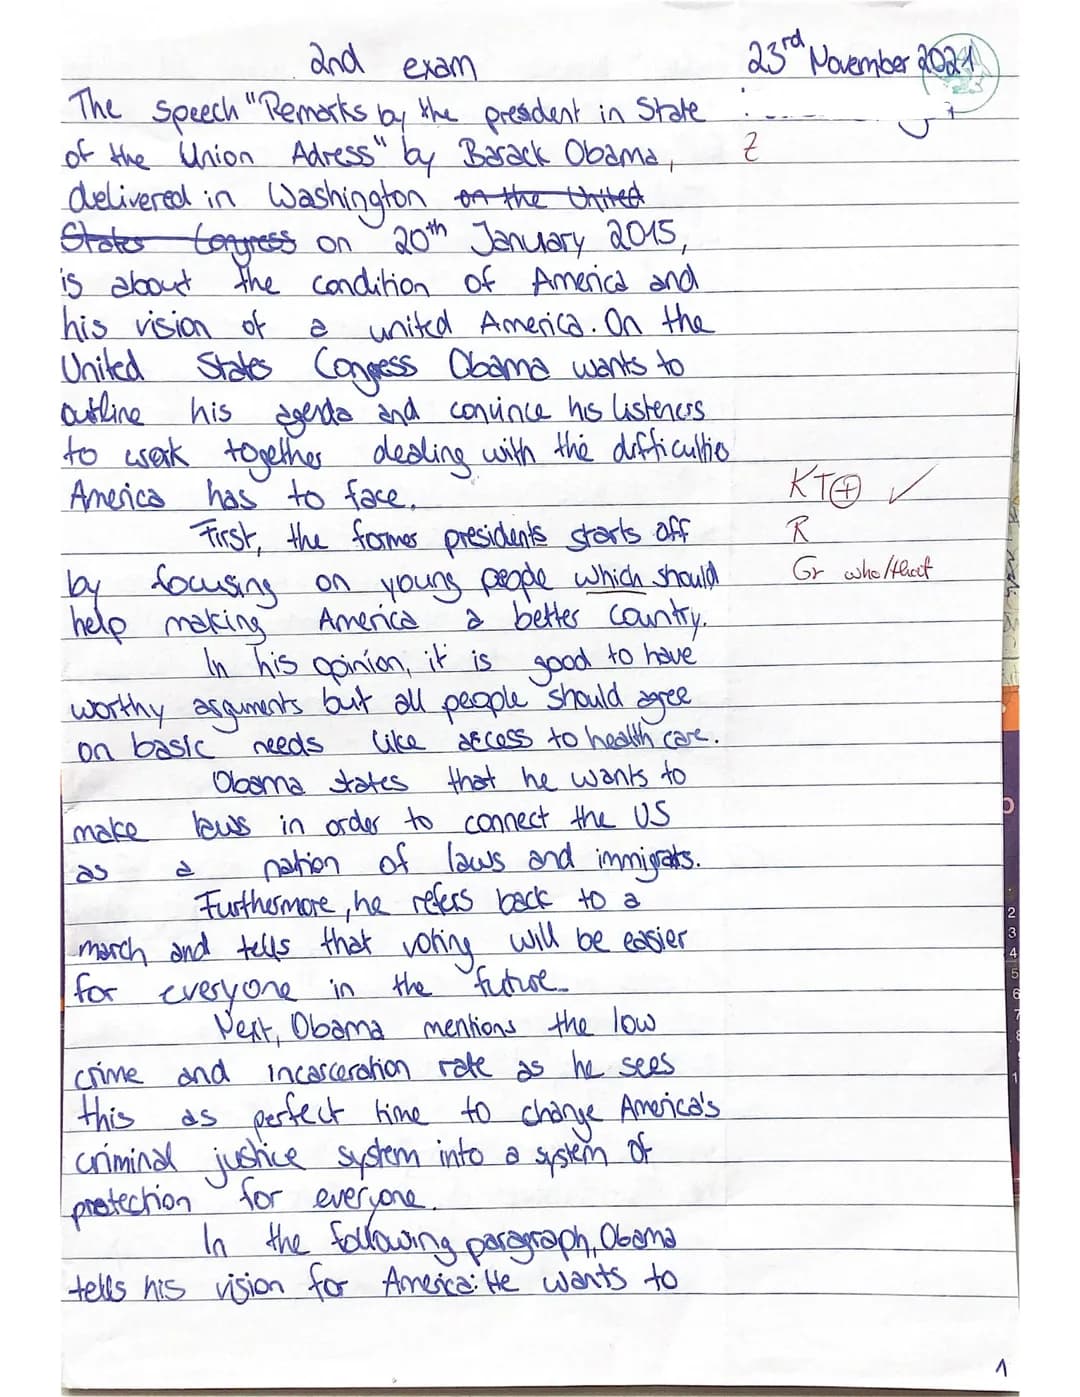 2nd exam 23rd November 2021
The speech "Remarks by the president in State
of the Union Adress" by Barack Obama, Z
delivered in Washington on the United
States Congress on 20th January 2015,
is about the condition of America and
his vision of a united America. On the
United States Congress Obama wants to
outline his agenda and convince his listeners
to work together dealing with the difficultie
America has to face. KT+ ✓
First, the former presidents starts off R
by focusing on young people which should Gr who/that
help making America a better country.
In his opinion, it is good to have
worthy arguments but all people should agree
on basic needs like access to health care.
Obama states that he wants to
make laws in order to connect the US
as a nation of laws and immigrats.
Furthermore, he refers back to a
march and tells that voting will be easier
for everyone in the future.
Next, Obama mentions the low
crime and incarceration rate as he sees
this as perfect time to change America's
criminal justice system into a system of
protection for everyone.
In the following paragraph, Obama
tells his vision for America: He wants to
1
2
3
4
5
6
7
8
1